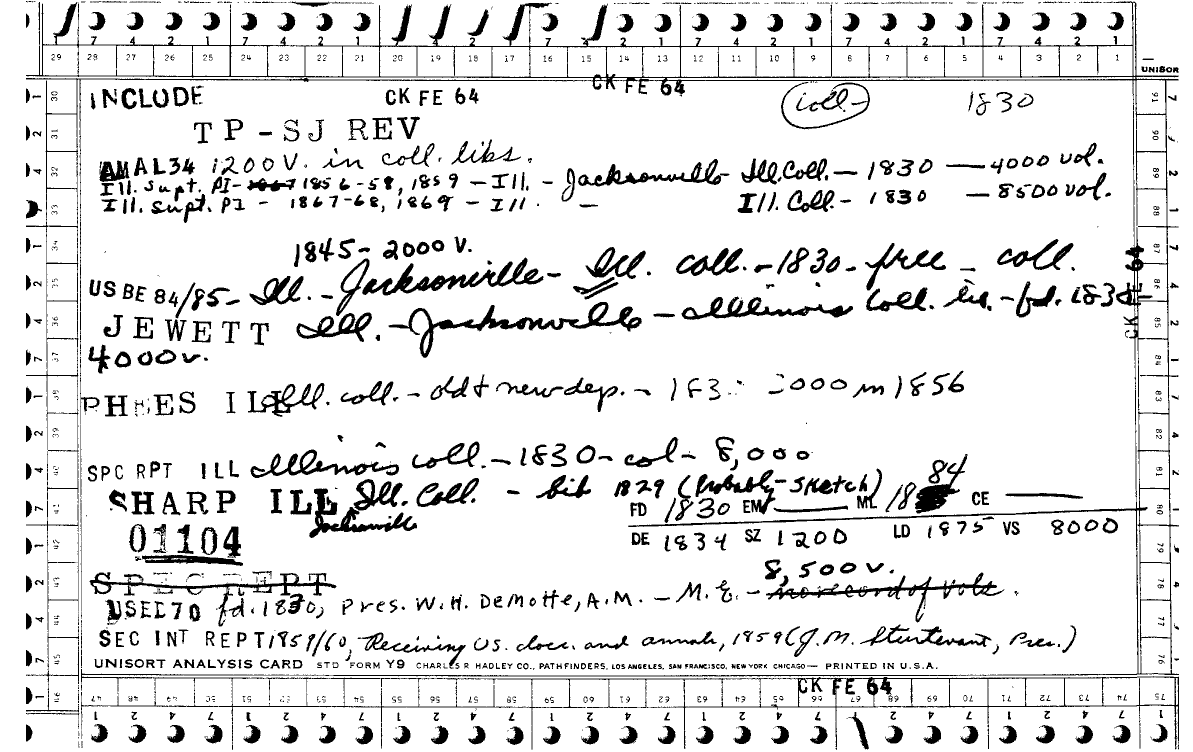 INCLUDE CK FE 64 CK FE 64 coll- 1830
TP-SJ REV
AMAL34 1200V. in coll. libs.
Ill. Supt. PI- 1867 1856-58, 1859 - Ill. - Jacksonville Ill. Coll. - 1830 - 4000 vol.
Ill. Supt. PI - 1867-68, 1869 - Ill. - Ill. Coll. - 1830 - 8500 vol.
1845- 2000 V.
US BE 84/85- Ill. - Jacksonville- Ill. coll. - 1830 - free - coll.
JEWETT Ill. - Jacksonville - Illinois Coll. lib. - fd. 1830
CK FE 64
4000v.
RHEES ILL Ill. coll. - old & new dep. - 183 2000 in 1856
SPC RPT ILL Illinois coll. - 1830 - col - 8,000
SHARP ILL Ill. Coll. - bib 1829 (Probably - Sketch) 84
Jacksonville FD 1830 EM ML 18 CE
01104 DE 1834 SZ 1200 LD 1875 VS 8000
8,500 v.
SPEC REPT
USEC70 fd. 1830, Pres. W. H. DeMotte, A.M. - M. E. - no record of vols.
SEC INT REPT 1859/60, Receiving US. docs. and annals, 1859 (J.M. Sturtevant, Pres.)
UNISORT ANALYSIS CARD STD FORM Y9 CHARLES R HADLEY CO., PATHFINDERS, LOS ANGELES, SAN FRANCISCO, NEW YORK CHICAGO — PRINTED IN U.S.A.
CK FE 64